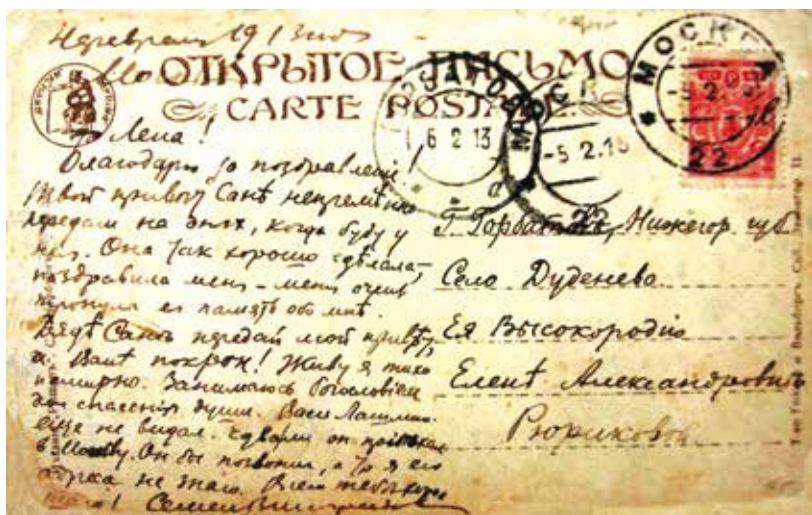 4 февраля 1913 года
ОТКРЫТОЕ ПИСЬМО
CARTE POSTALE
МОСКВА
-5 2.13
22
6 2 13
МОСКВА
-5 2.13
22
Лена!
Благодарю за поздравление!
Твой привет Санѣ непремѣнно
передам на днях, когда буду у
них. Она так хорошо сдѣлала,
поздравила меня – меня очень
тронула ея память обо мнѣ.
Дядѣ Санѣ передай мой привѣт,
а Ванѣ поклон! Живу я тихо
и мирно. Занимаюсь богословіем
для спасенія души. Васи
еще не видал. Едва ли он
в Москву. Он бы позвонил, а то я его
адреса не знаю. Всего тебѣ
Семен
Г. Горбатовъ, Нижегор. губ.
Село Дуденево
Ея Высокородію
Еленѣ Александровнѣ
Рюриковой